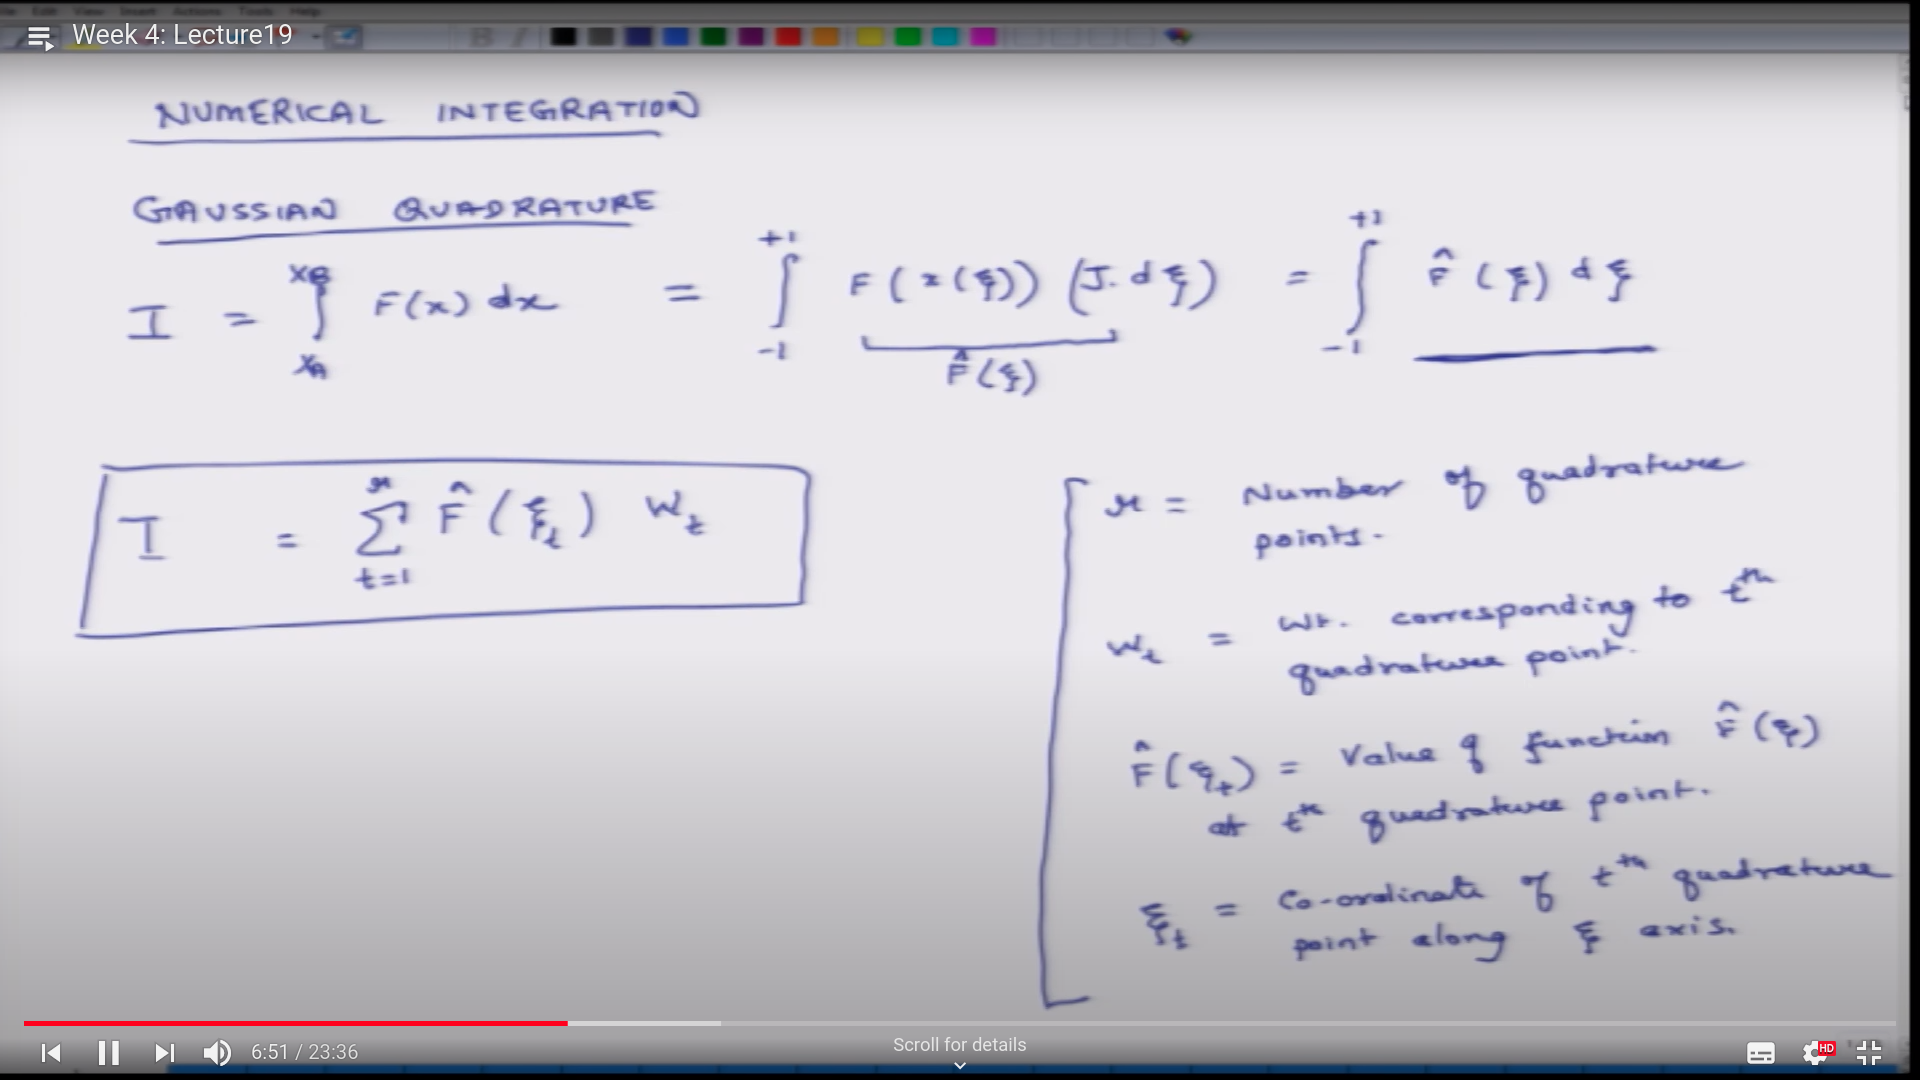 File Edit View Insert Actions Tools Help
Week 4: Lecture19
B I
NUMERICAL INTEGRATION
GAUSSIAN QUADRATURE
I = ∫_{x_A}^{x_B} F(x) dx = ∫_{-1}^{+1} F(x(ξ)) (J. dξ) = ∫_{-1}^{+1} F̂(ξ) dξ
F̂(ξ)
I = Σ_{t=1}^{r} F̂(ξ_t) W_t
r = Number of quadrature
points.
W_t = Wt. corresponding to t^th
quadrature point.
F̂(ξ_t) = Value of function F̂(ξ)
at t^th quadrature point.
ξ_t = Co-ordinate of t^th quadrature
point along ξ axis.
6:51 / 23:36
Scroll for details
HD